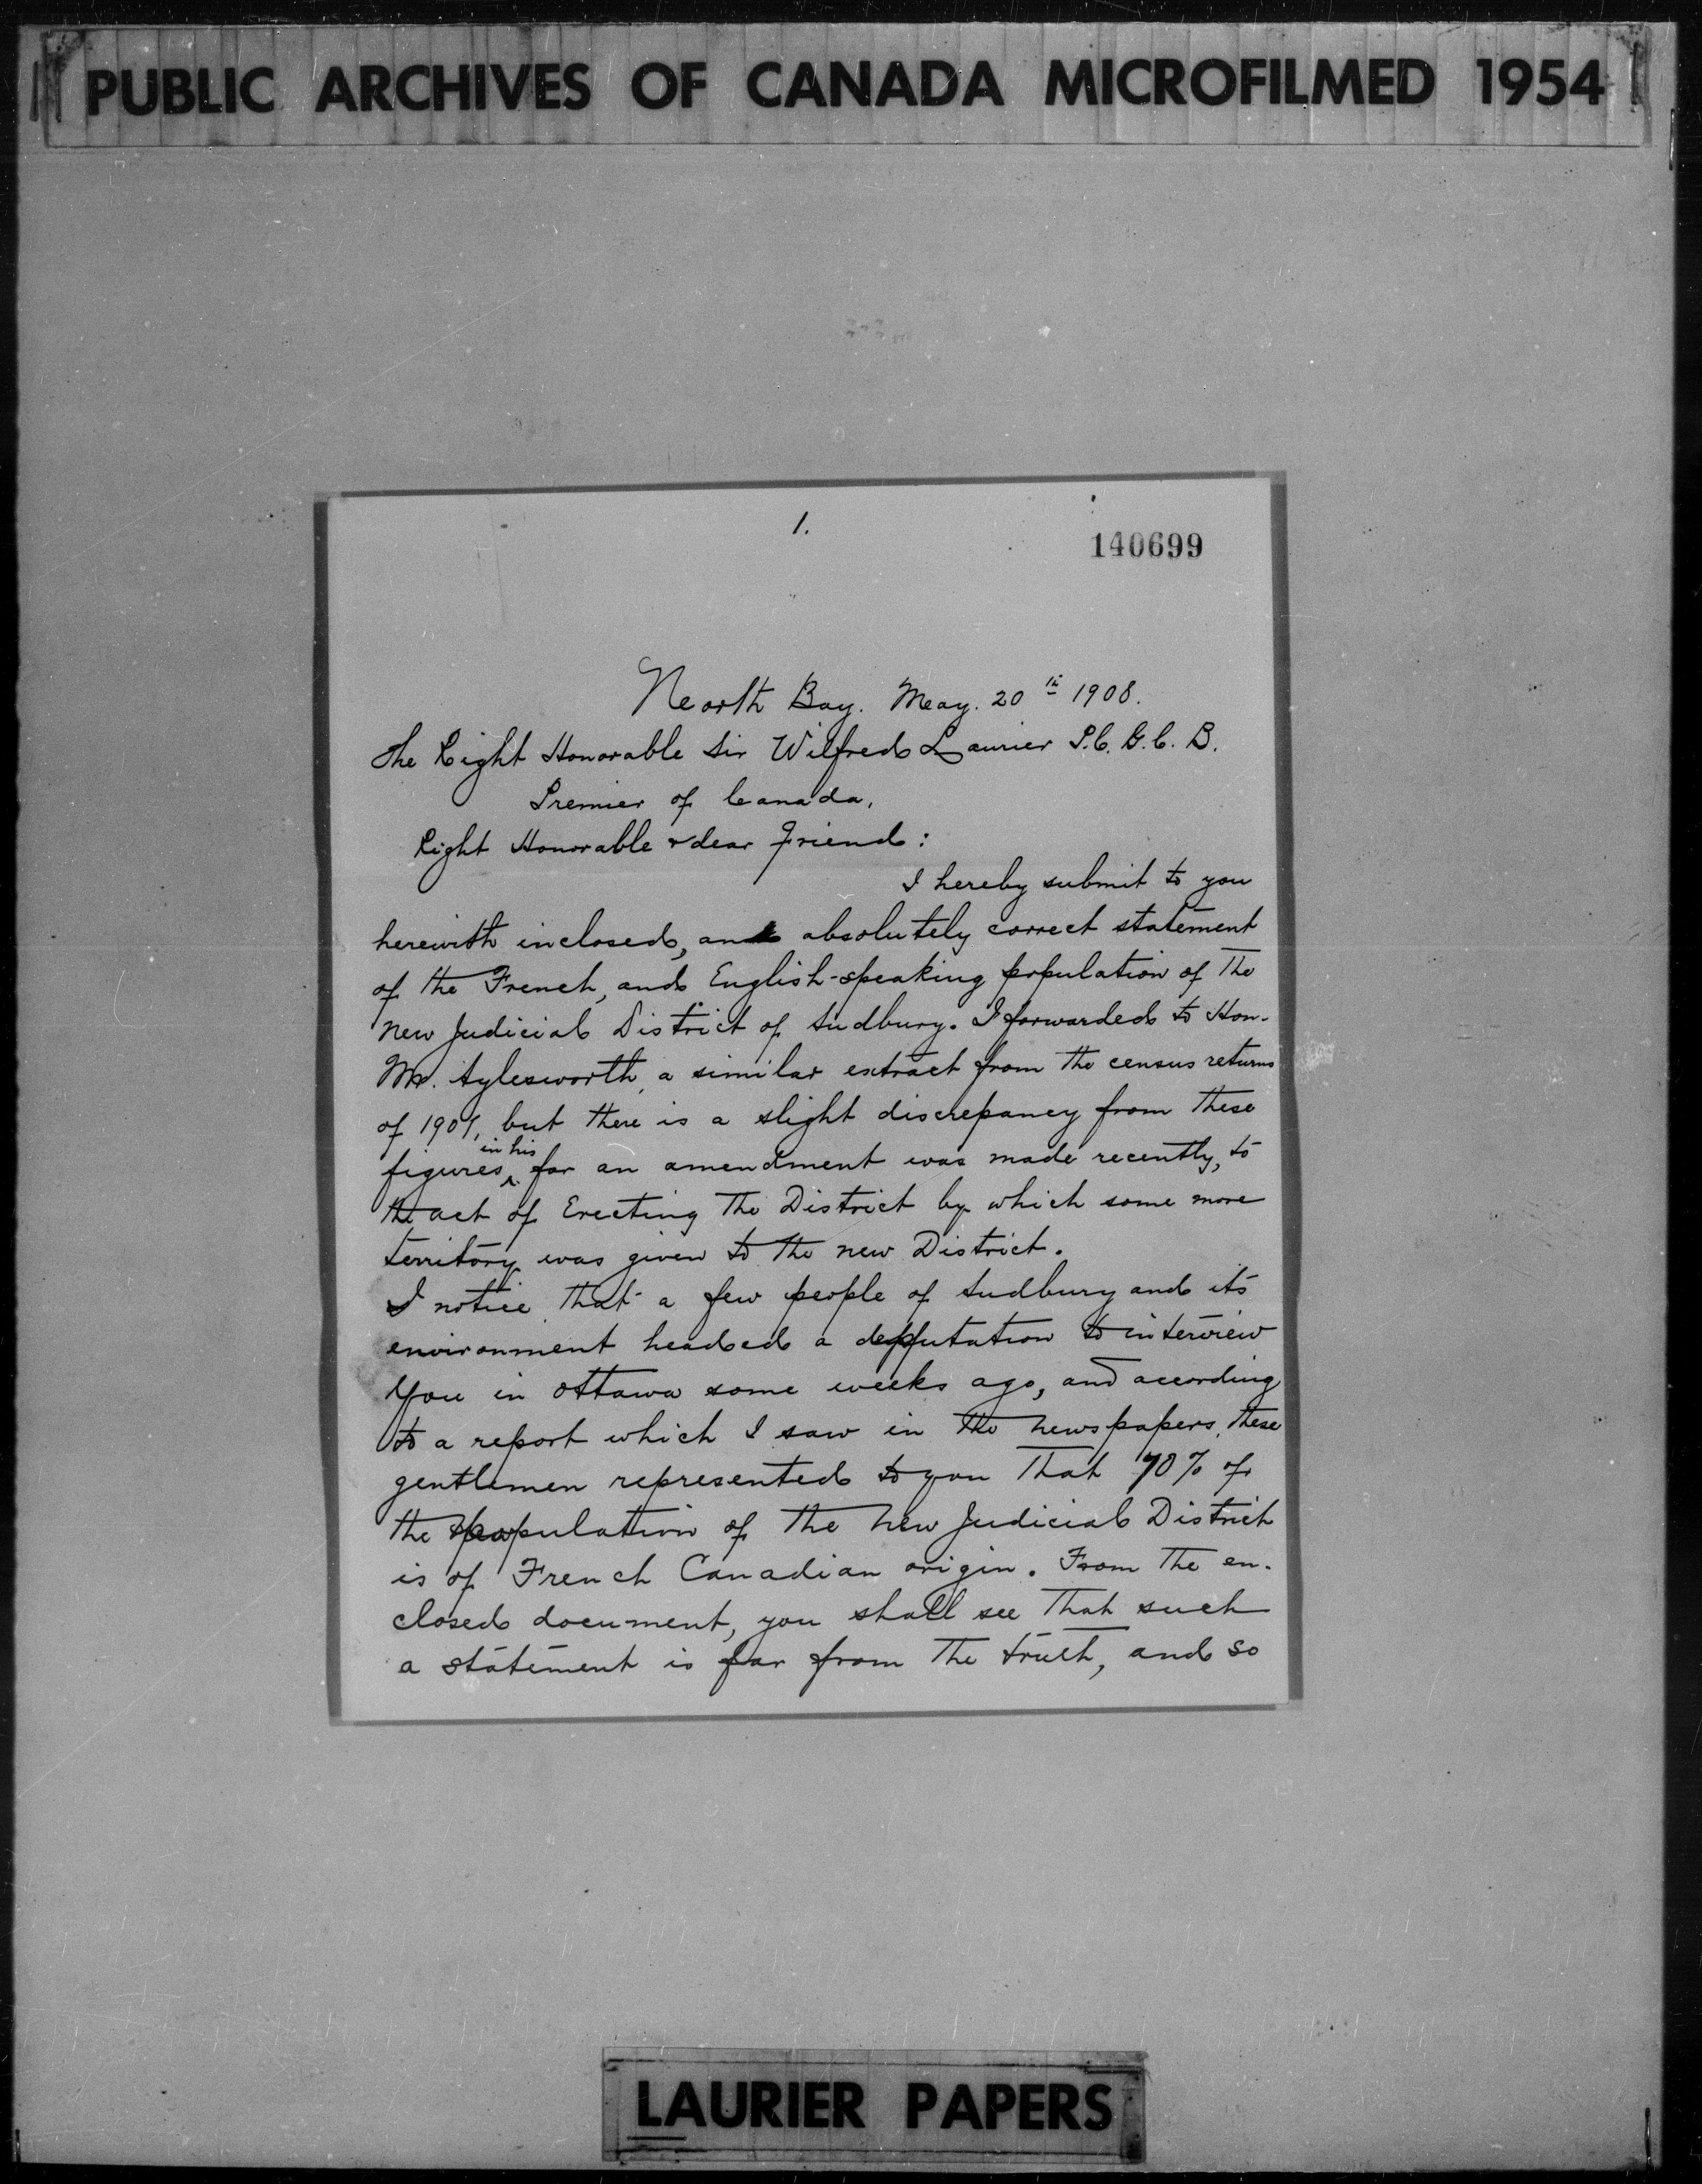 PUBLIC ARCHIVES OF CANADA MICROFILMED 1954
1.
140699
North Bay. May. 20th 1908.
The Right Honorable Sir Wilfred Laurier P.C. G.C. B.
Premier of Canada,
Right Honorable & dear friend:
I hereby submit to you
herewith inclosed, an absolutely correct statement
of the French, and English-speaking population of the
new Judicial District of Sudbury. I forwarded to Hon-
Mr. Aylesworth, a similar extract from the census returns
of 1901, but there is a slight discrepancy from these
in his
figures, for an amendment was made recently, to
the act of Erecting the District by which some more
territory was given to the new District.
I notice that a few people of Sudbury and its
environment headed a deputation to interview
You in Ottawa some weeks ago, and according
to a report which I saw in the newspapers, these
gentlemen represented to you that 70% of
the population of the new Judicial District
is of French Canadian origin. From the en-
closed document, you shall see that such
a statement is far from the truth, and so
LAURIER PAPERS